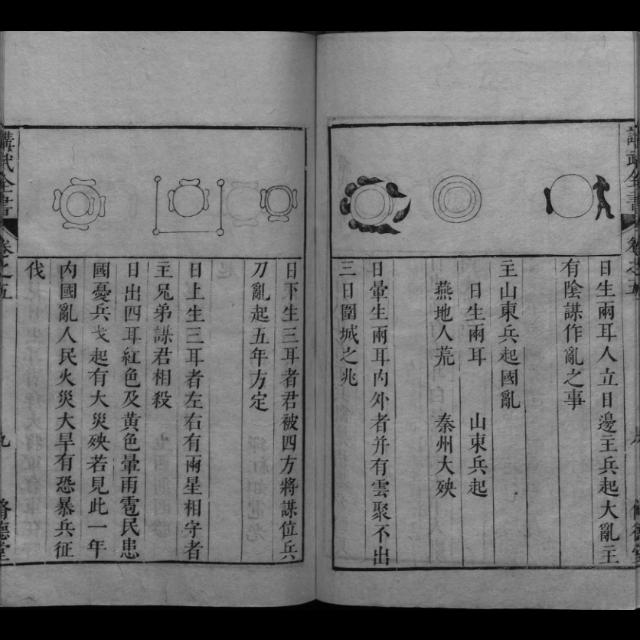 日生兩耳人立日邊主兵起大亂主
有陰謀作亂之事
主山東兵起國亂
日生兩耳　山東兵起
燕地人荒　秦州大殃
日暈生兩耳內外者并有雲聚不出
三日圍城之兆
日下生三耳者君被四方將謀位兵
刀亂起五年方定
日上生三耳者左右有兩星相字者
主兄弟謀君相殺
日出四耳紅色及黃色暈雨雹民患
國憂兵戈起有大災殃若見此一年
內國亂人民火災大旱有恐暴兵征
伐